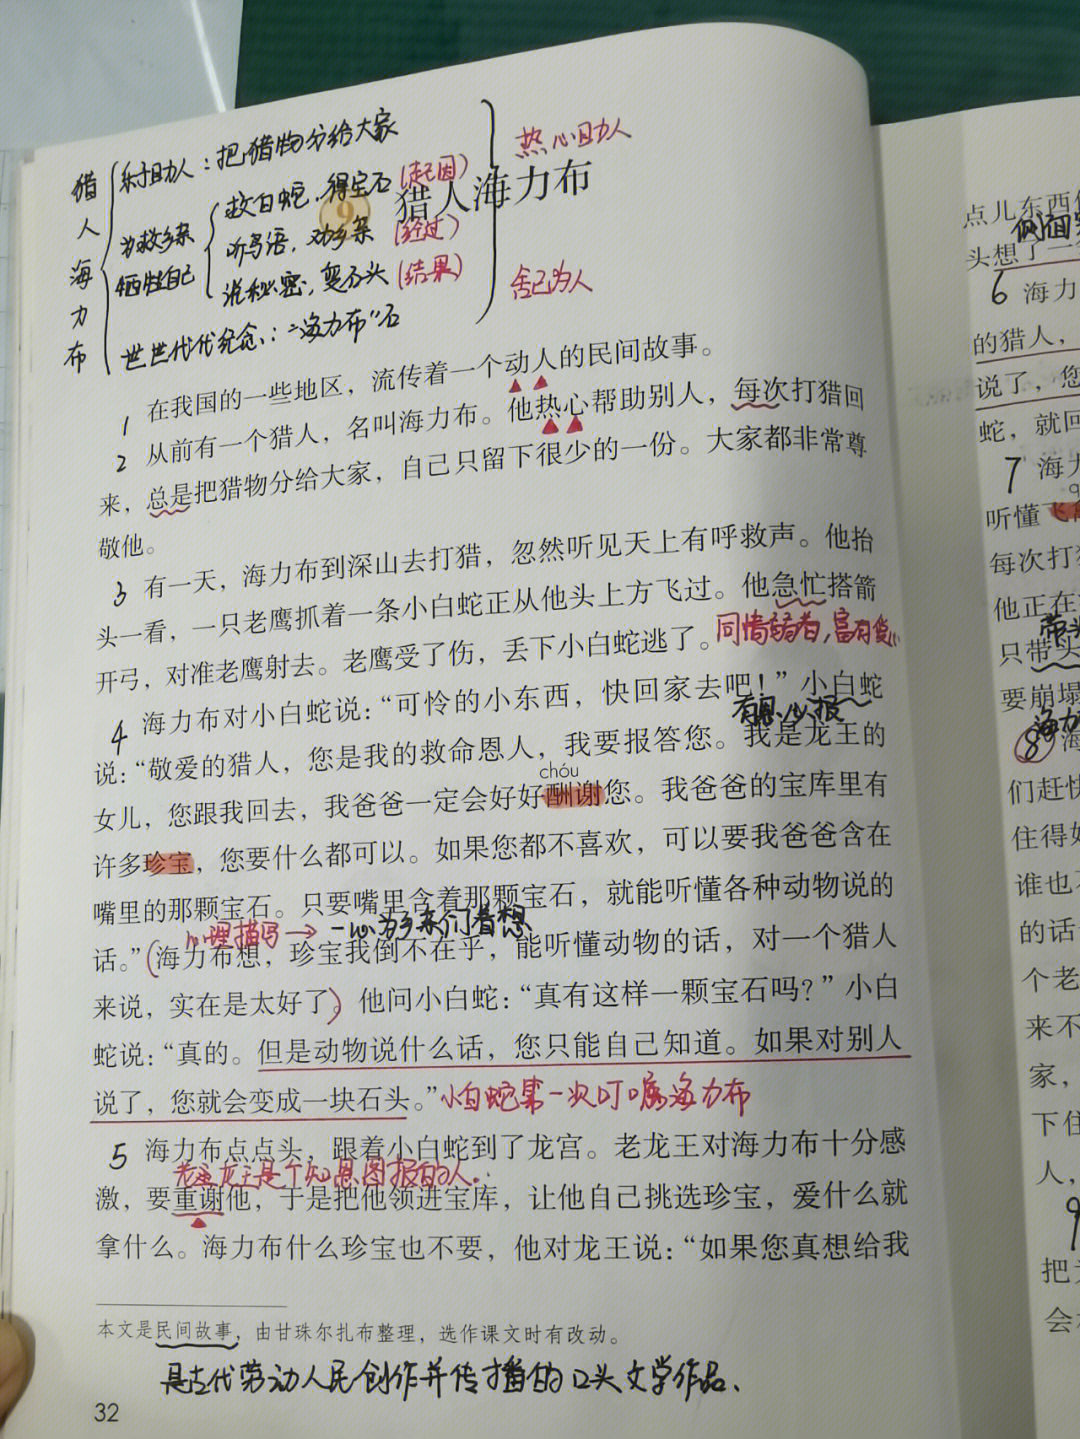 猎人海力布
乐于助人：把猎物分给大家
热心助人
为救乡亲
牺牲自己
救白蛇，得宝石（起因）
听鸟语，劝乡亲（经过）
说秘密，变石头（结果）
舍己为人
世世代代纪念：“海力布”石
9 猎人海力布
1 在我国的一些地区，流传着一个动人的民间故事。
2 从前有一个猎人，名叫海力布。他热心帮助别人，每次打猎回
来，总是把猎物分给大家，自己只留下很少的一份。大家都非常尊
敬他。
3 有一天，海力布到深山去打猎，忽然听见天上有呼救声。他抬
头一看，一只老鹰抓着一条小白蛇正从他头上方飞过。他急忙搭箭
开弓，对准老鹰射去。老鹰受了伤，丢下小白蛇逃了。
同情弱者，富有爱心
4 海力布对小白蛇说：“可怜的小东西，快回家去吧！”小白蛇
有恩必报
说：“敬爱的猎人，您是我的救命恩人，我要报答您。我是龙王的
chóu
女儿，您跟我回去，我爸爸一定会好好酬谢您。我爸爸的宝库里有
许多珍宝，您要什么都可以。如果您都不喜欢，可以要我爸爸含在
嘴里的那颗宝石。只要嘴里含着那颗宝石，就能听懂各种动物说的
心理描写→一心为乡亲们着想
话。”（海力布想，珍宝我倒不在乎，能听懂动物的话，对一个猎人
来说，实在是太好了）他问小白蛇：“真有这样一颗宝石吗？”小白
蛇说：“真的。但是动物说什么话，您只能自己知道。如果对别人
说了，您就会变成一块石头。”
小白蛇第一次叮嘱海力布
5 海力布点点头，跟着小白蛇到了龙宫。老龙王对海力布十分感
龙王是个知恩图报的人.
激，要重谢他，于是把他领进宝库，让他自己挑选珍宝，爱什么就
拿什么。海力布什么珍宝也不要，他对龙王说：“如果您真想给我
本文是民间故事，由甘珠尔扎布整理，选作课文时有改动。
是古代劳动人民创作并传播的口头文学作品.
32
点儿东西
侧面
头想了一
6 海力
的猎人，
说了，您
蛇，就回
7 海力
听懂飞
每次打
他正在
带头
只带头
要崩塌
海力
8 海
们赶快
住得好
谁也
的话
个老
来不
家，
下住
人，
9
把
会